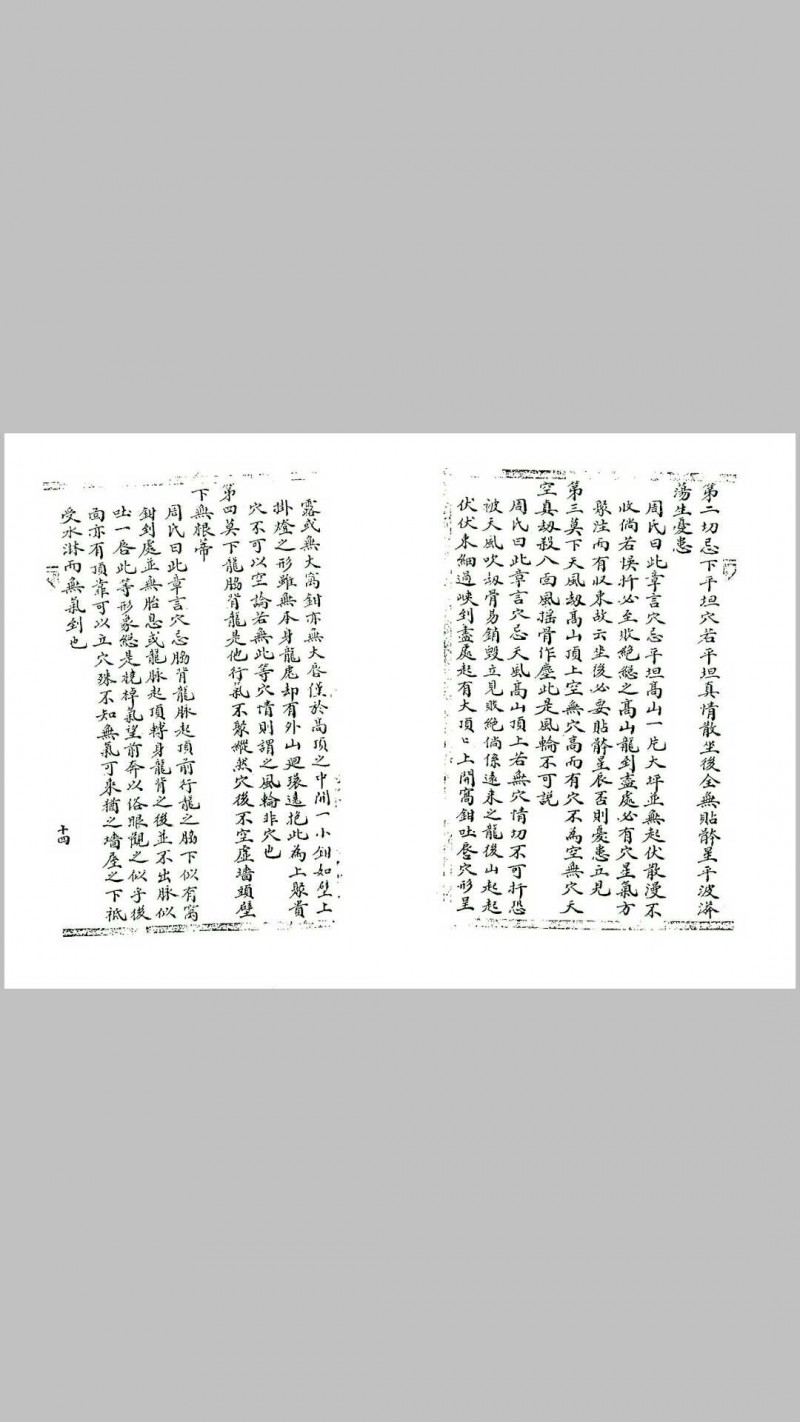 第二切忌下平坦穴若平坦真情散坐後全無貼骵星平波漭
蕩生憂患
周氏曰此章言穴忌平坦高山一片大坪並無起伏散漫不
收倘若悞扦必至敗絕總之高山龍到盡處必有穴星氣方
聚注而有収束故云坐後必要貼骵星辰否則憂患立見
第三莫下天風刼高山頂上空無穴高而有穴不為空無穴天
空真刼殺八面風搖骨作塵此是風輪不可說
周氏曰此章言穴忌天風高山頂上若無穴情切不可扦恐
被天風吹刼骨易銷毀立見敗絕倘係遠來之龍後山起起
伏伏束細過峽到盡處起有大頂〻上開窩鉗吐唇穴形呈
露或無大窩鉗亦無大唇僅於高頂之中間一小鉗如壁上
掛燈之形雖無本身龍虎却有外山廻環遠抱此為上聚貴
穴不可以空論若無此等穴情則謂之風輪非穴也
第四莫下龍脇背龍是他行氣不聚縱然穴後不空虛墻頭壁
下無根蒂
周氏曰此章言穴忌脇背龍脉起頂前行龍之脇下似有窩
鉗到處並無胎息或龍脉起頂轉身龍背之後並不出脉似
吐一唇此等形象總是橈棹氣望前奔以俗眼觀之似乎後
面亦有頂靠可以立穴殊不知無氣可乘猶之墻座之下祗
受水淋而無氣到也
十四